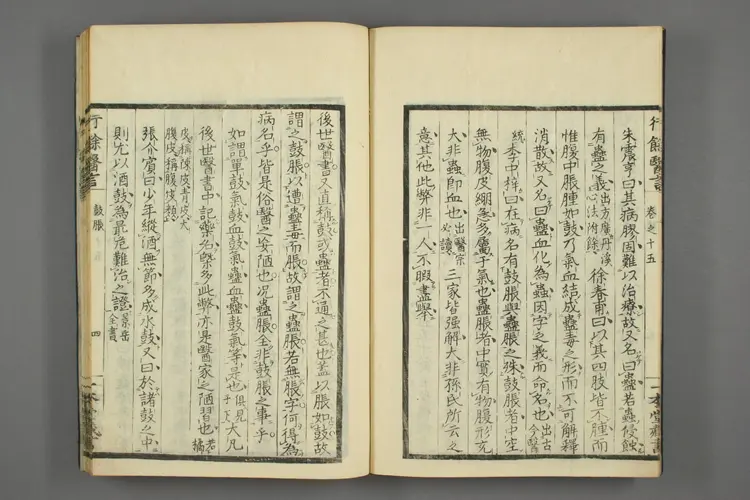 朱震亨曰其病膠固難以治療故又名曰蠱若蟲侵蝕
有蠱之義出方廣丹溪心法附餘徐春甫曰以其四肢皆不腫而
惟腹中脹腫如鼓乃氣血結成蠱毒之形而不可解釋
消散故又名曰蠱血化為蟲因字之義而命名也出古今醫
統李中梓曰在病名有鼓脹與蠱脹之殊鼓脹者中空
無物腹皮綳急多屬于氣也蠱脹者中實有物腹形充
大非蟲即血也出醫宗必讀三家皆強解大非孫氏所云之
意其他此弊非一人不暇盡舉
行餘醫言
卷之十五
後世醫書又直稱鼓或蠱者不通之甚也蓋以脹如鼓故
謂之鼓脹以遭蠱毒而脹故謂之蠱脹若無脹字何得為
病名乎皆是俗醫之妄陋也况蠱脹全非鼓脹之事乎
如謂單鼓氣鼓血鼓氣蠱血蠱鼓氣等是也俱見于
後世醫書中記藥名槩多此弊亦是醫家之陋習也
皮稱陳皮青皮大腹皮稱腹皮
張介賓曰少年縱酒無節多成水鼓又曰於諸鼓之中
則尤以酒鼓為最危難治之證景岳全書
行餘醫言
鼓脹
四